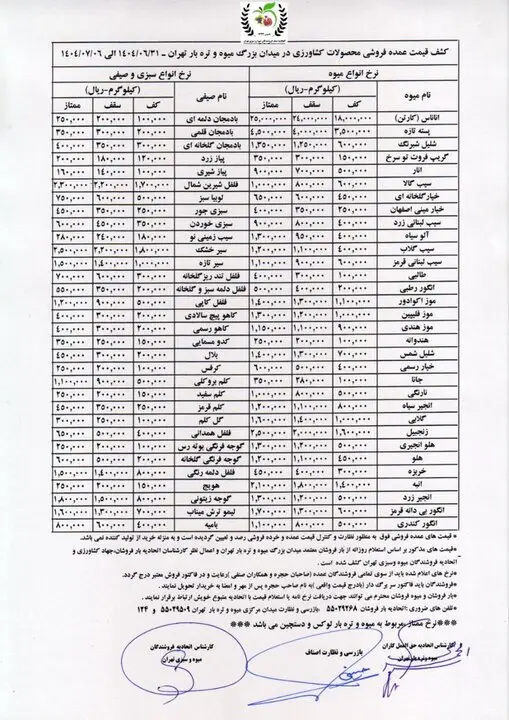 کشف قیمت عمده فروشی محصولات کشاورزی در میدان بزرگ میوه و تره بار تهران ـ ۱۴۰۴/۰۶/۳۱ الی ۱۴۰۴/۰۷/۰۶
نرخ انواع میوه نرخ انواع سبزی و صیفی
نام میوه (کیلوگرم-ریال) نام صیفی (کیلوگرم-ریال)
کف سقف ممتاز کف سقف ممتاز
آناناس (کارتن) ۱۸,۰۰۰,۰۰۰ ۲۴,۰۰۰,۰۰۰ ۲۵,۰۰۰,۰۰۰ بادمجان دلمه ای ۱۰۰,۰۰۰ ۲۰۰,۰۰۰ ۲۵۰,۰۰۰
پسته تازه ۳,۵۰۰,۰۰۰ ۴,۰۰۰,۰۰۰ ۴,۵۰۰,۰۰۰ بادمجان قلمی ۲۰۰,۰۰۰ ۳۰۰,۰۰۰ ۳۵۰,۰۰۰
شلیل شبرنگ ۶۰۰,۰۰۰ ۱,۲۵۰,۰۰۰ ۱,۳۵۰,۰۰۰ بادمجان گلخانه ای ۳۰۰,۰۰۰ ۳۵۰,۰۰۰ ۴۰۰,۰۰۰
گریپ فروت تو سرخ ۱۵۰,۰۰۰ ۳۰۰,۰۰۰ ۳۵۰,۰۰۰ پیاز زرد ۱۲۰,۰۰۰ ۱۸۰,۰۰۰ ۲۰۰,۰۰۰
انار ۵۰۰,۰۰۰ ۷۰۰,۰۰۰ ۹۰۰,۰۰۰ پیاز شیری ۱۰۰,۰۰۰ ۱۴۰,۰۰۰ ۱۶۰,۰۰۰
سیب گالا ۶۰۰,۰۰۰ ۸۰۰,۰۰۰ ۱,۰۰۰,۰۰۰ فلفل شیرین شمال ۱,۷۰۰,۰۰۰ ۲,۲۰۰,۰۰۰ ۲,۳۰۰,۰۰۰
خیارگلخانه ای ۴۰۰,۰۰۰ ۶۰۰,۰۰۰ ۶۵۰,۰۰۰ لوبیا سبز ۵۰۰,۰۰۰ ۶۰۰,۰۰۰ ۷۵۰,۰۰۰
خیار مینی اصفهان ۲۰۰,۰۰۰ ۳۵۰,۰۰۰ ۴۰۰,۰۰۰ سبزی جور ۲۵۰,۰۰۰ ۳۵۰,۰۰۰ ۴۵۰,۰۰۰
سیب لبنانی زرد ۴۰۰,۰۰۰ ۸۰۰,۰۰۰ ۹۰۰,۰۰۰ سبزی خوردن ۲۵۰,۰۰۰ ۳۵۰,۰۰۰ ۴۵۰,۰۰۰
آلو سیاه ۴۰۰,۰۰۰ ۹۵۰,۰۰۰ ۱,۳۰۰,۰۰۰ سیب زمینی نو ۱۸۰,۰۰۰ ۲۴۰,۰۰۰ ۲۸۰,۰۰۰
سیب گلاب ۴۰۰,۰۰۰ ۱,۱۰۰,۰۰۰ ۱,۲۰۰,۰۰۰ سیر خشک ۱,۸۰۰,۰۰۰ ۲,۲۰۰,۰۰۰ ۲,۵۰۰,۰۰۰
سیب لبنانی قرمز ۶۰۰,۰۰۰ ۹۰۰,۰۰۰ ۱,۱۰۰,۰۰۰ سیر تازه ۱,۰۰۰,۰۰۰ ۱,۴۰۰,۰۰۰ ۱,۵۰۰,۰۰۰
طالبی ۱۰۰,۰۰۰ ۳۰۰,۰۰۰ ۴۰۰,۰۰۰ فلفل تند ریزگلخانه ۳۰۰,۰۰۰ ۶۰۰,۰۰۰ ۷۰۰,۰۰۰
انگور رطبی ۲۰۰,۰۰۰ ۳۵۰,۰۰۰ ۴۰۰,۰۰۰ فلفل دلمه سبز و گلخانه ۲۰۰,۰۰۰ ۳۵۰,۰۰۰ ۵۰۰,۰۰۰
موز اکوادور ۱,۱۰۰,۰۰۰ ۱,۳۰۰,۰۰۰ ۱,۴۰۰,۰۰۰ فلفل کاپی ۵۰۰,۰۰۰ ۹۰۰,۰۰۰ ۱,۲۰۰,۰۰۰
موز فلیپین ۱,۰۰۰,۰۰۰ ۱,۲۰۰,۰۰۰ ۱,۳۰۰,۰۰۰ کاهو پیچ سالادی ۲۰۰,۰۰۰ ۳۰۰,۰۰۰ ۴۰۰,۰۰۰
موز هندی ۹۰۰,۰۰۰ ۱,۱۰۰,۰۰۰ ۱,۱۵۰,۰۰۰ کاهو رسمی ۲۰۰,۰۰۰ ۳۰۰,۰۰۰ ۴۰۰,۰۰۰
هندوانه ۱۰۰,۰۰۰ ۲۰۰,۰۰۰ ۲۵۰,۰۰۰ کدو مسمایی ۱۵۰,۰۰۰ ۲۵۰,۰۰۰ ۳۵۰,۰۰۰
شلیل شمس ۷۰۰,۰۰۰ ۱,۳۰۰,۰۰۰ ۱,۴۰۰,۰۰۰ بلال ۲۰۰,۰۰۰ ۳۰۰,۰۰۰ ۴۵۰,۰۰۰
خیار رسمی ۴۰۰,۰۰۰ ۵۰۰,۰۰۰ ۶۰۰,۰۰۰ کرفس ۱۰۰,۰۰۰ ۲۰۰,۰۰۰ ۲۵۰,۰۰۰
جانا ۱۰۰,۰۰۰ ۲۸۰,۰۰۰ ۳۵۰,۰۰۰ کلم بروکلی ۵۰۰,۰۰۰ ۹۰۰,۰۰۰ ۱,۱۰۰,۰۰۰
نارنگی ۵۰۰,۰۰۰ ۸۰۰,۰۰۰ ۱,۱۰۰,۰۰۰ کلم سفید ۱۵۰,۰۰۰ ۲۰۰,۰۰۰ ۴۵۰,۰۰۰
انجیر سیاه ۸۰۰,۰۰۰ ۱,۱۰۰,۰۰۰ ۱,۲۰۰,۰۰۰ کلم قرمز ۲۵۰,۰۰۰ ۳۵۰,۰۰۰ ۴۵۰,۰۰۰
گلابی ۱,۰۰۰,۰۰۰ ۱,۴۰۰,۰۰۰ ۱,۶۰۰,۰۰۰ گل کلم ۱۰۰,۰۰۰ ۲۵۰,۰۰۰ ۳۰۰,۰۰۰
زنجبیل ۱,۶۰۰,۰۰۰ ۲,۰۰۰,۰۰۰ ۲,۵۰۰,۰۰۰ فلفل همدانی ۴۰۰,۰۰۰ ۵۰۰,۰۰۰ ۶۵۰,۰۰۰
هلو انجیری ۵۰۰,۰۰۰ ۱,۱۰۰,۰۰۰ ۱,۲۰۰,۰۰۰ گوجه فرنگی بوته رس ۱۰۰,۰۰۰ ۲۰۰,۰۰۰ ۲۵۰,۰۰۰
هلو ۴۵۰,۰۰۰ ۱,۱۰۰,۰۰۰ ۱,۲۰۰,۰۰۰ گوجه فرنگی گلخانه ۲۰۰,۰۰۰ ۵۰۰,۰۰۰ ۶۰۰,۰۰۰
خربزه ۳۰۰,۰۰۰ ۴۰۰,۰۰۰ ۴۵۰,۰۰۰ فلفل دلمه رنگی ۸۰۰,۰۰۰ ۱,۴۰۰,۰۰۰ ۱,۵۰۰,۰۰۰
انبه ۱,۴۰۰,۰۰۰ ۱,۸۰۰,۰۰۰ ۲,۱۰۰,۰۰۰ هویج ۱۵۰,۰۰۰ ۲۰۰,۰۰۰ ۲۵۰,۰۰۰
انجیر زرد ۷۰۰,۰۰۰ ۱,۲۰۰,۰۰۰ ۱,۳۰۰,۰۰۰ گوجه زیتونی ۵۰۰,۰۰۰ ۱,۵۰۰,۰۰۰ ۱,۸۰۰,۰۰۰
انگور بی دانه قرمز ۷۰۰,۰۰۰ ۱,۲۰۰,۰۰۰ ۱,۳۰۰,۰۰۰ لیمو ترش میناب ۷۰۰,۰۰۰ ۱,۳۰۰,۰۰۰ ۱,۶۰۰,۰۰۰
انگور کندری ۵۰۰,۰۰۰ ۸۰۰,۰۰۰ ۱,۱۰۰,۰۰۰ بامیه ۴۰۰,۰۰۰ ۶۰۰,۰۰۰ ۸۰۰,۰۰۰
* قیمت های عمده فروشی فوق به منظور نظارت و کنترل قیمت عمده و خرده فروشی رصد و تعیین گردیده است و به منزله خرید از تولید کننده نمی باشد.
*قیمت های مذکور بر اساس استعلام روزانه از بار فروشان معتمد میدان بزرگ میوه و تره بار تهران و اعمال نظر کارشناسان اتحادیه بار فروشان،جهاد کشاورزی و
اتحادیه فروشندگان میوه وسبزی تهران کشف شده است.
*نرخ های اعلام شده باید از سوی تمامی فروشندگان عمده (صاحبان حجره و همکاران صنفی )رعایت و در فاکتور فروش معتبر درج گردد.
*فروشندگان باید فاکتور سر برگ دار (بادرج قیمت واقعی )به نام صاحب حجره پس از مهر و امضا به خریدار تحویل نمایند.
*بار فروشان و میوه فروشان محترم می توانند جهت دریافت نرخ نامه یا استعلام قیمت با اتحادیه متبوع خویش ارتباط برقرار نمایند .
*تلفن های ضروری :اتحادیه بار فروشان ۵۵۰۲۹۲۶۸ بازرسی و نظارت میدان مرکزی میوه و تره بار تهران ۵۵۰۲۹۵۰۹ و ۱۲۴
***نرخ ممتاز مربوط به میوه و تره بار لوکس و دستچین می باشد ***
کارشناس اتحادیه حق العمل کاران
میوه و تره بار تهران
بازرسی و نظارت اصناف
کارشناس اتحادیه فروشندگان
میوه و سبزی تهران